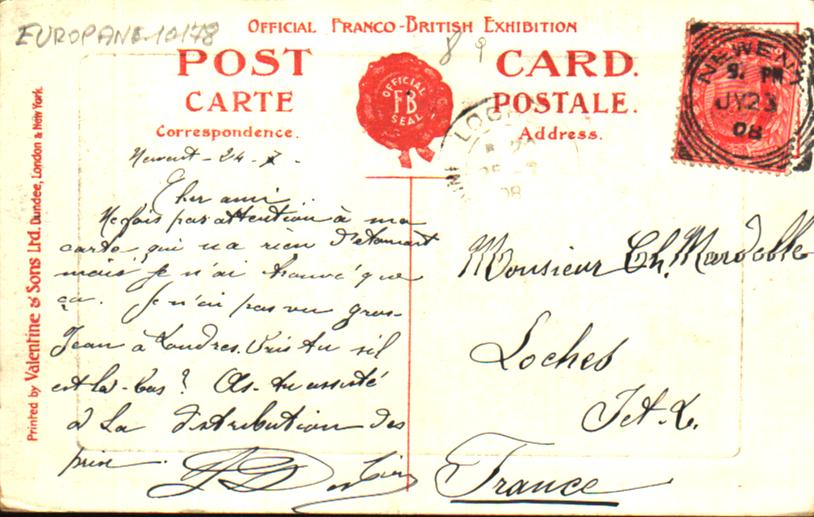 EUROPANE 10178
OFFICIAL FRANCO-BRITISH EXHIBITION
8 9
POST CARD.
CARTE POSTALE.
Correspondence. Address.
OFFICIAL
FB
SEAL
NEWENT
9. PM
JY 23
08
LOC
08
Printed by Valentine & Sons Ltd. Dundee, London & New York.
Newent - 24 - 7.
Cher ami
Ne fais pas attention à ma
carte qui n'a rien d'étonnant
mais je n'ai trouvé que
ça. Je n'ai pas vu gros-
Jean à Londres. Vris tu sil
est la-bas? As-tu assisté
à la distribution des
prix.
Monsieur Ch. Mardelle
Loches
I et. L.
France